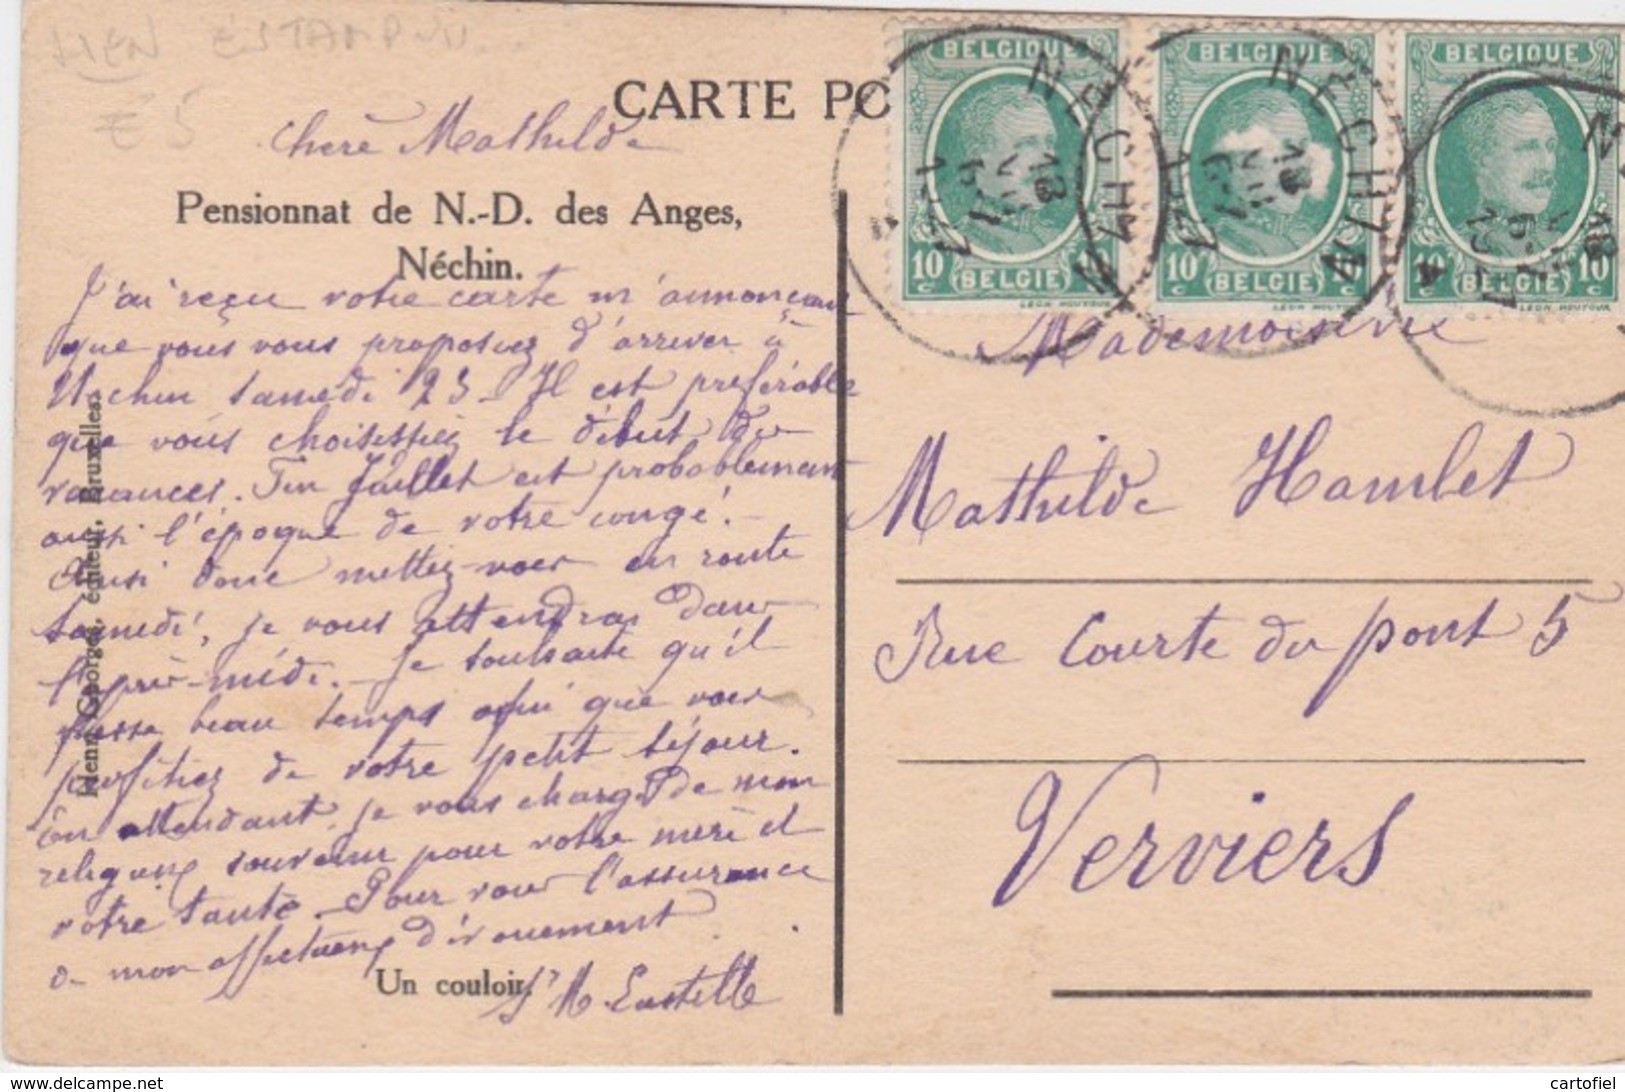 LIEN ESTAMPUIS
€ 5
CARTE PO
Chère Mathilde
Pensionnat de N.-D. des Anges,
Néchin.
J'ai reçu votre carte m'annonçant
que vous vous proposiez d'arriver à
Néchin samedi 23 - Il est préférable
que vous choisissiez le début des
vacances. Fin Juillet est probablement
aussi l'époque de votre congé. -
Ainsi donc mettez-vous en route
samedi, je vous attendrai dans
l'après-midi. - Je souhaite qu'il
fasse beau temps afin que vous
profitiez de votre petit séjour.
En attendant je vous charge de mon
religieux souvenir pour votre mère et
votre tante. - Pour vous l'assurance
de mon affectueux dévouement
Un couloir.
Sr M. Eustelle
Henri Georges, éditeur, Bruxelles.
BELGIQUE
10c 10c
BELGIE
LEON HOUTOUX
BELGIQUE
10c 10c
BELGIE
LEON HOUTOUX
BELGIQUE
10c 10c
BELGIE
LEON HOUTOUX
NECHIN
NECHIN
Mademoiselle
Mathilde Hamlet
Rue Courte du pont 5
Verviers
http://www.delcampe.net
cartofiel